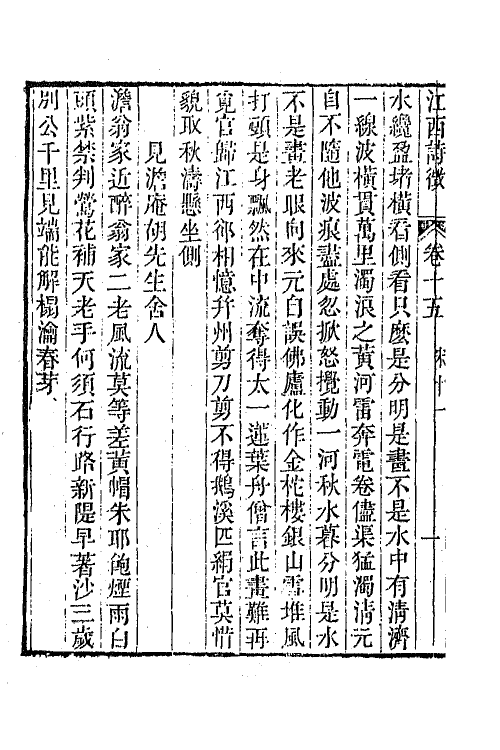 江西詩徵 卷十五 宋十一 一
水纔盈堵橫看側看只麼是分明是畫不是水中有淸濟
一線波橫貫萬里濁浪之黃河雷奔電卷儘渠猛濁淸元
自不隨他波痕盡處忽掀怒攪動一河秋水暮分明是水
不是畫老眼向來元自誤佛廬化作金柁樓銀山雪堆風
打頭是身飄然在中流奪得太一蓮葉舟僧言此畫難再
覓官歸江西卻相憶幷州剪刀剪不得鵝溪匹絹官莫惜
貌取秋濤懸坐側
見澹庵胡先生舍人
澹翁家近醉翁家二老風流莫等差黃帽朱耶飽煙雨白
頭紫禁判鶯花補天老手何須石行路新隄早著沙三歲
別公千里見端能解榻瀹春芽